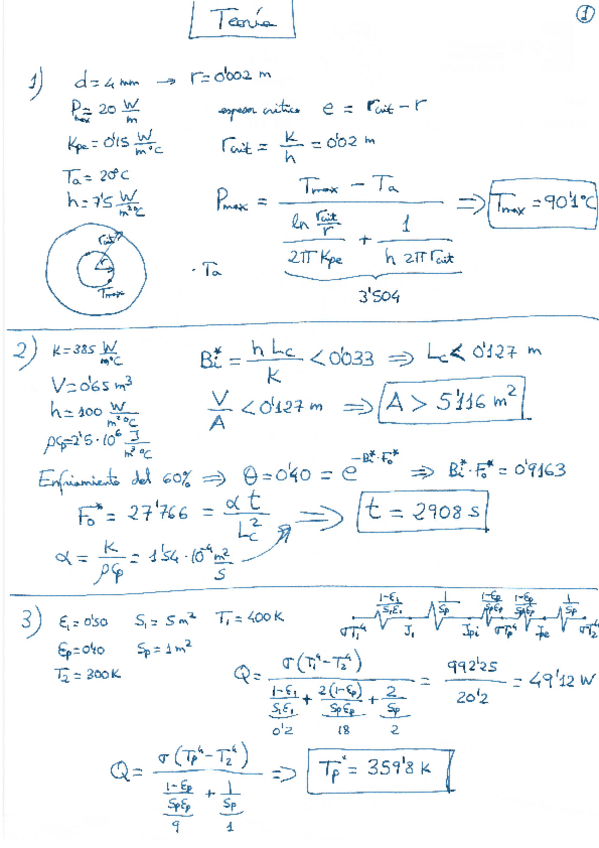 Teoría
①
1) d = 4 mm → r = 0'002 m
P_max = 20 W/m
espesor crítico e = r_crit - r
K_pe = 0'15 W/m°C
r_crit = K/h = 0'02 m
T_a = 20°C
h = 7'5 W/m²°C
P_max = (T_max - T_a) / ( (ln (r_crit/r))/(2π K_pe) + 1/(h 2π r_crit) ) ⇒ T_max = 90'1°C
3'504
r_crit
r
T_max
· T_a
2) K = 385 W/m°C
Bi* = h L_c / K < 0'033 ⇒ L_c < 0'127 m
V = 0'65 m³
h = 100 W/m²°C
V/A < 0'127 m ⇒ A > 5'116 m²
ρc_p = 2'5·10⁶ J/m³°C
Enfriamiento del 60% ⇒ θ = 0'40 = e^(-Bi*·Fo*) ⇒ Bi*·Fo* = 0'9163
Fo* = 27'766 = α t / L_c² ⇒ t = 2908 s
α = K/ρc_p = 1'54·10⁻⁴ m²/s
3) ε₁ = 0'50 S₁ = 5 m² T₁ = 400 K
(1-ε₁)/(S₁ε₁) 1/S_p (1-ε_p)/(S_pε_p) (1-ε_p)/(S_pε_p) 1/S_p
σT₁⁴ J₁ J_pi σT_p⁴ J_pe σT₂⁴
ε_p = 0'40 S_p = 1 m²
T₂ = 300 K
Q = σ(T₁⁴ - T₂⁴) / ( (1-ε₁)/(S₁ε₁) + 2(1-ε_p)/(S_pε_p) + 2/S_p ) = 992'25 / 20'2 = 49'12 W
0'2 18 2
Q = σ(T_p⁴ - T₂⁴) / ( (1-ε_p)/(S_pε_p) + 1/S_p ) ⇒ T_p* = 359'8 K
9 1